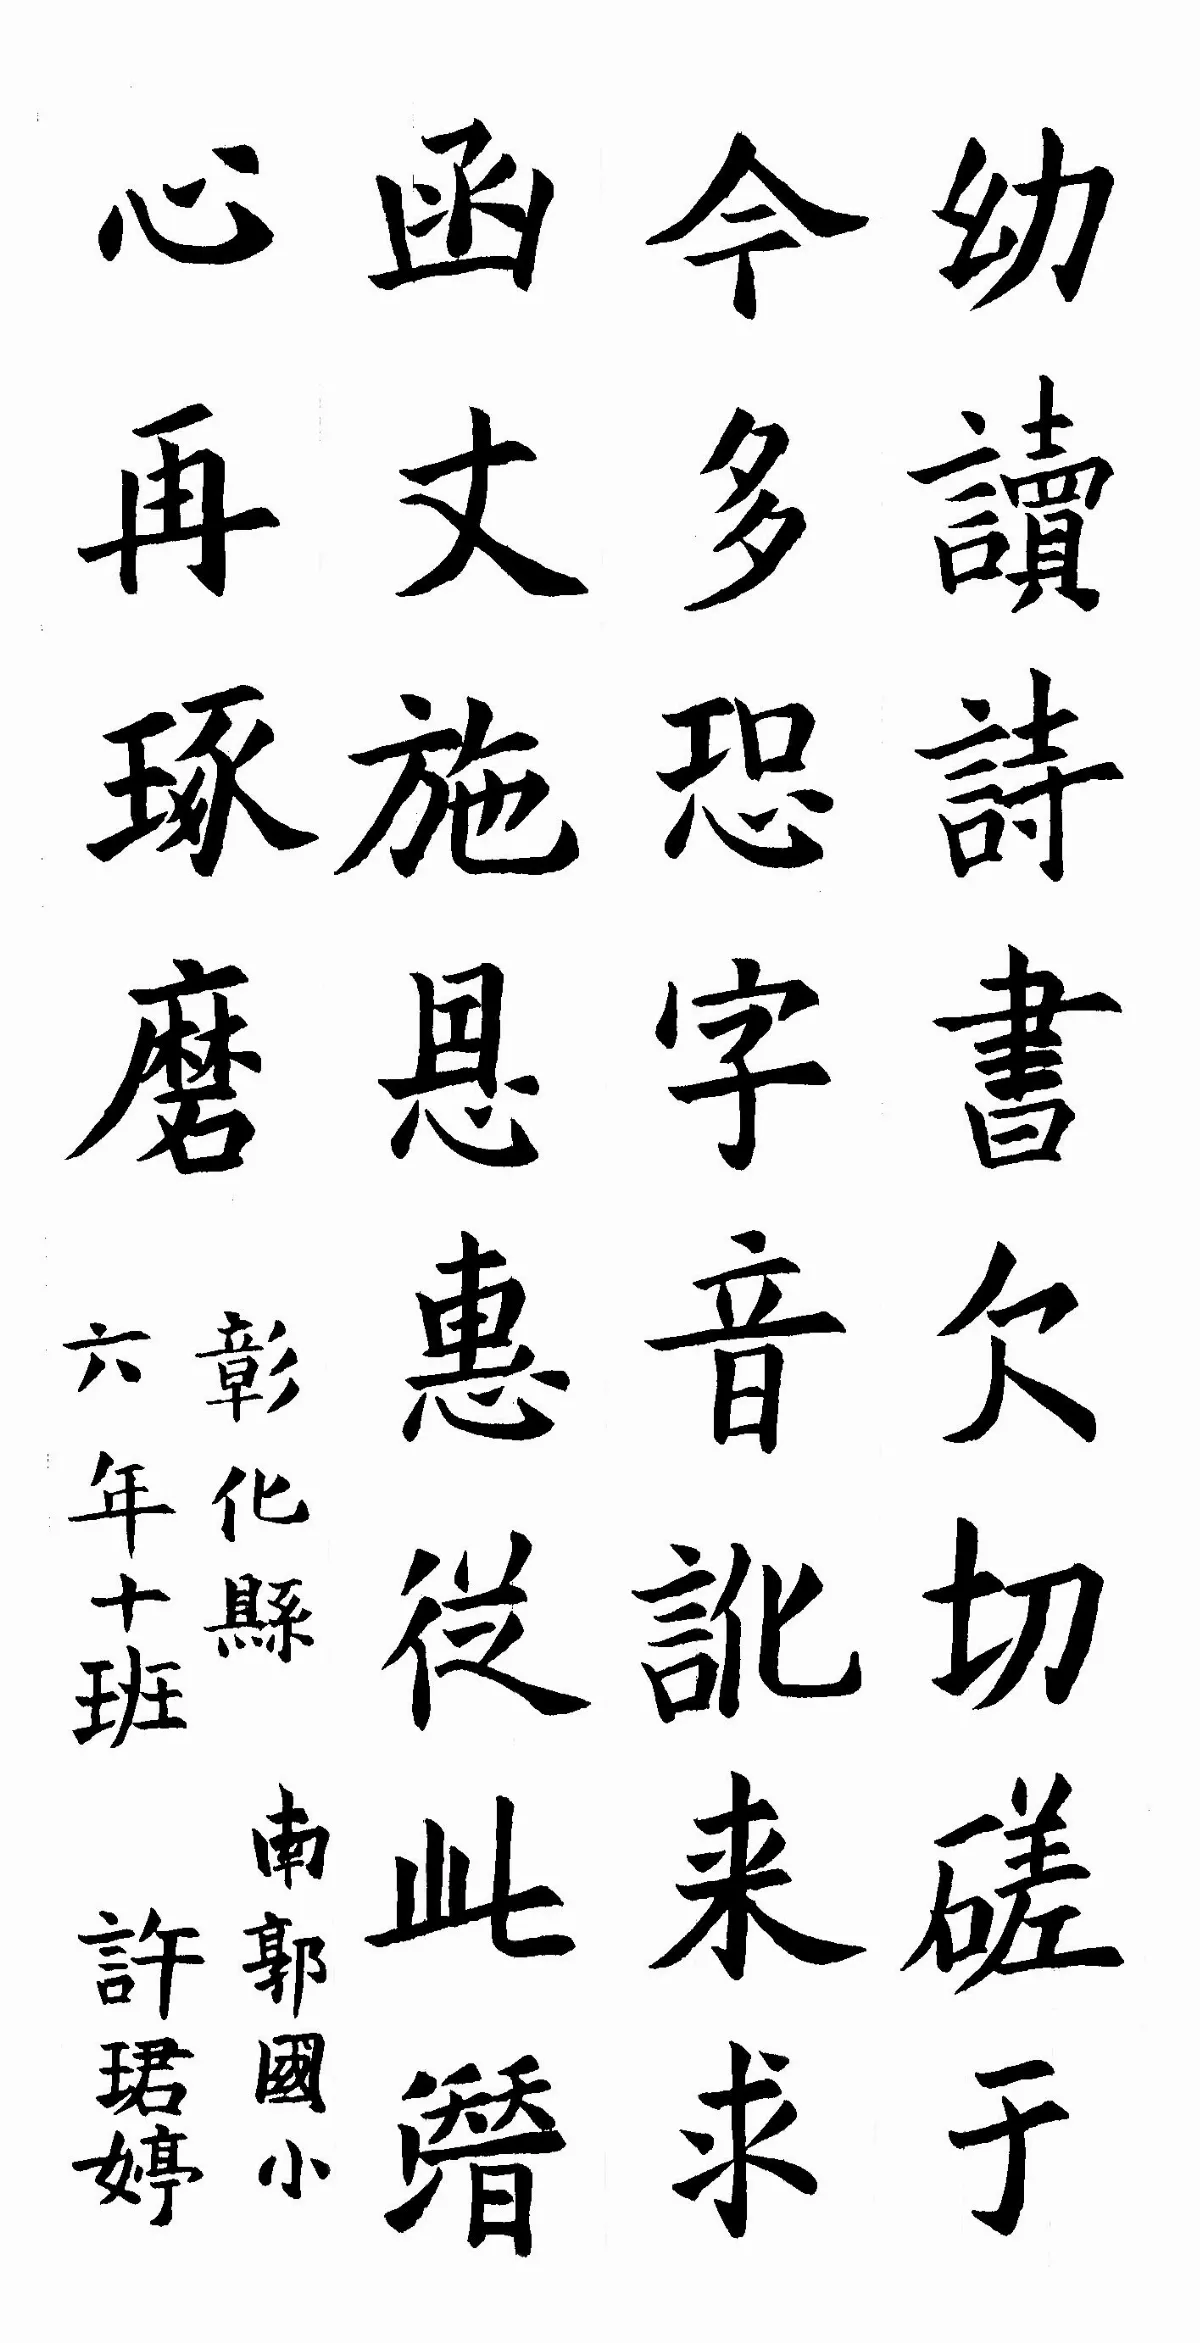 幼讀詩書欠切磋于
今多恐字音訛来求
函丈施恩惠從此潛
心再琢磨
彰化縣 南郭國小
六年十班 許珺婷